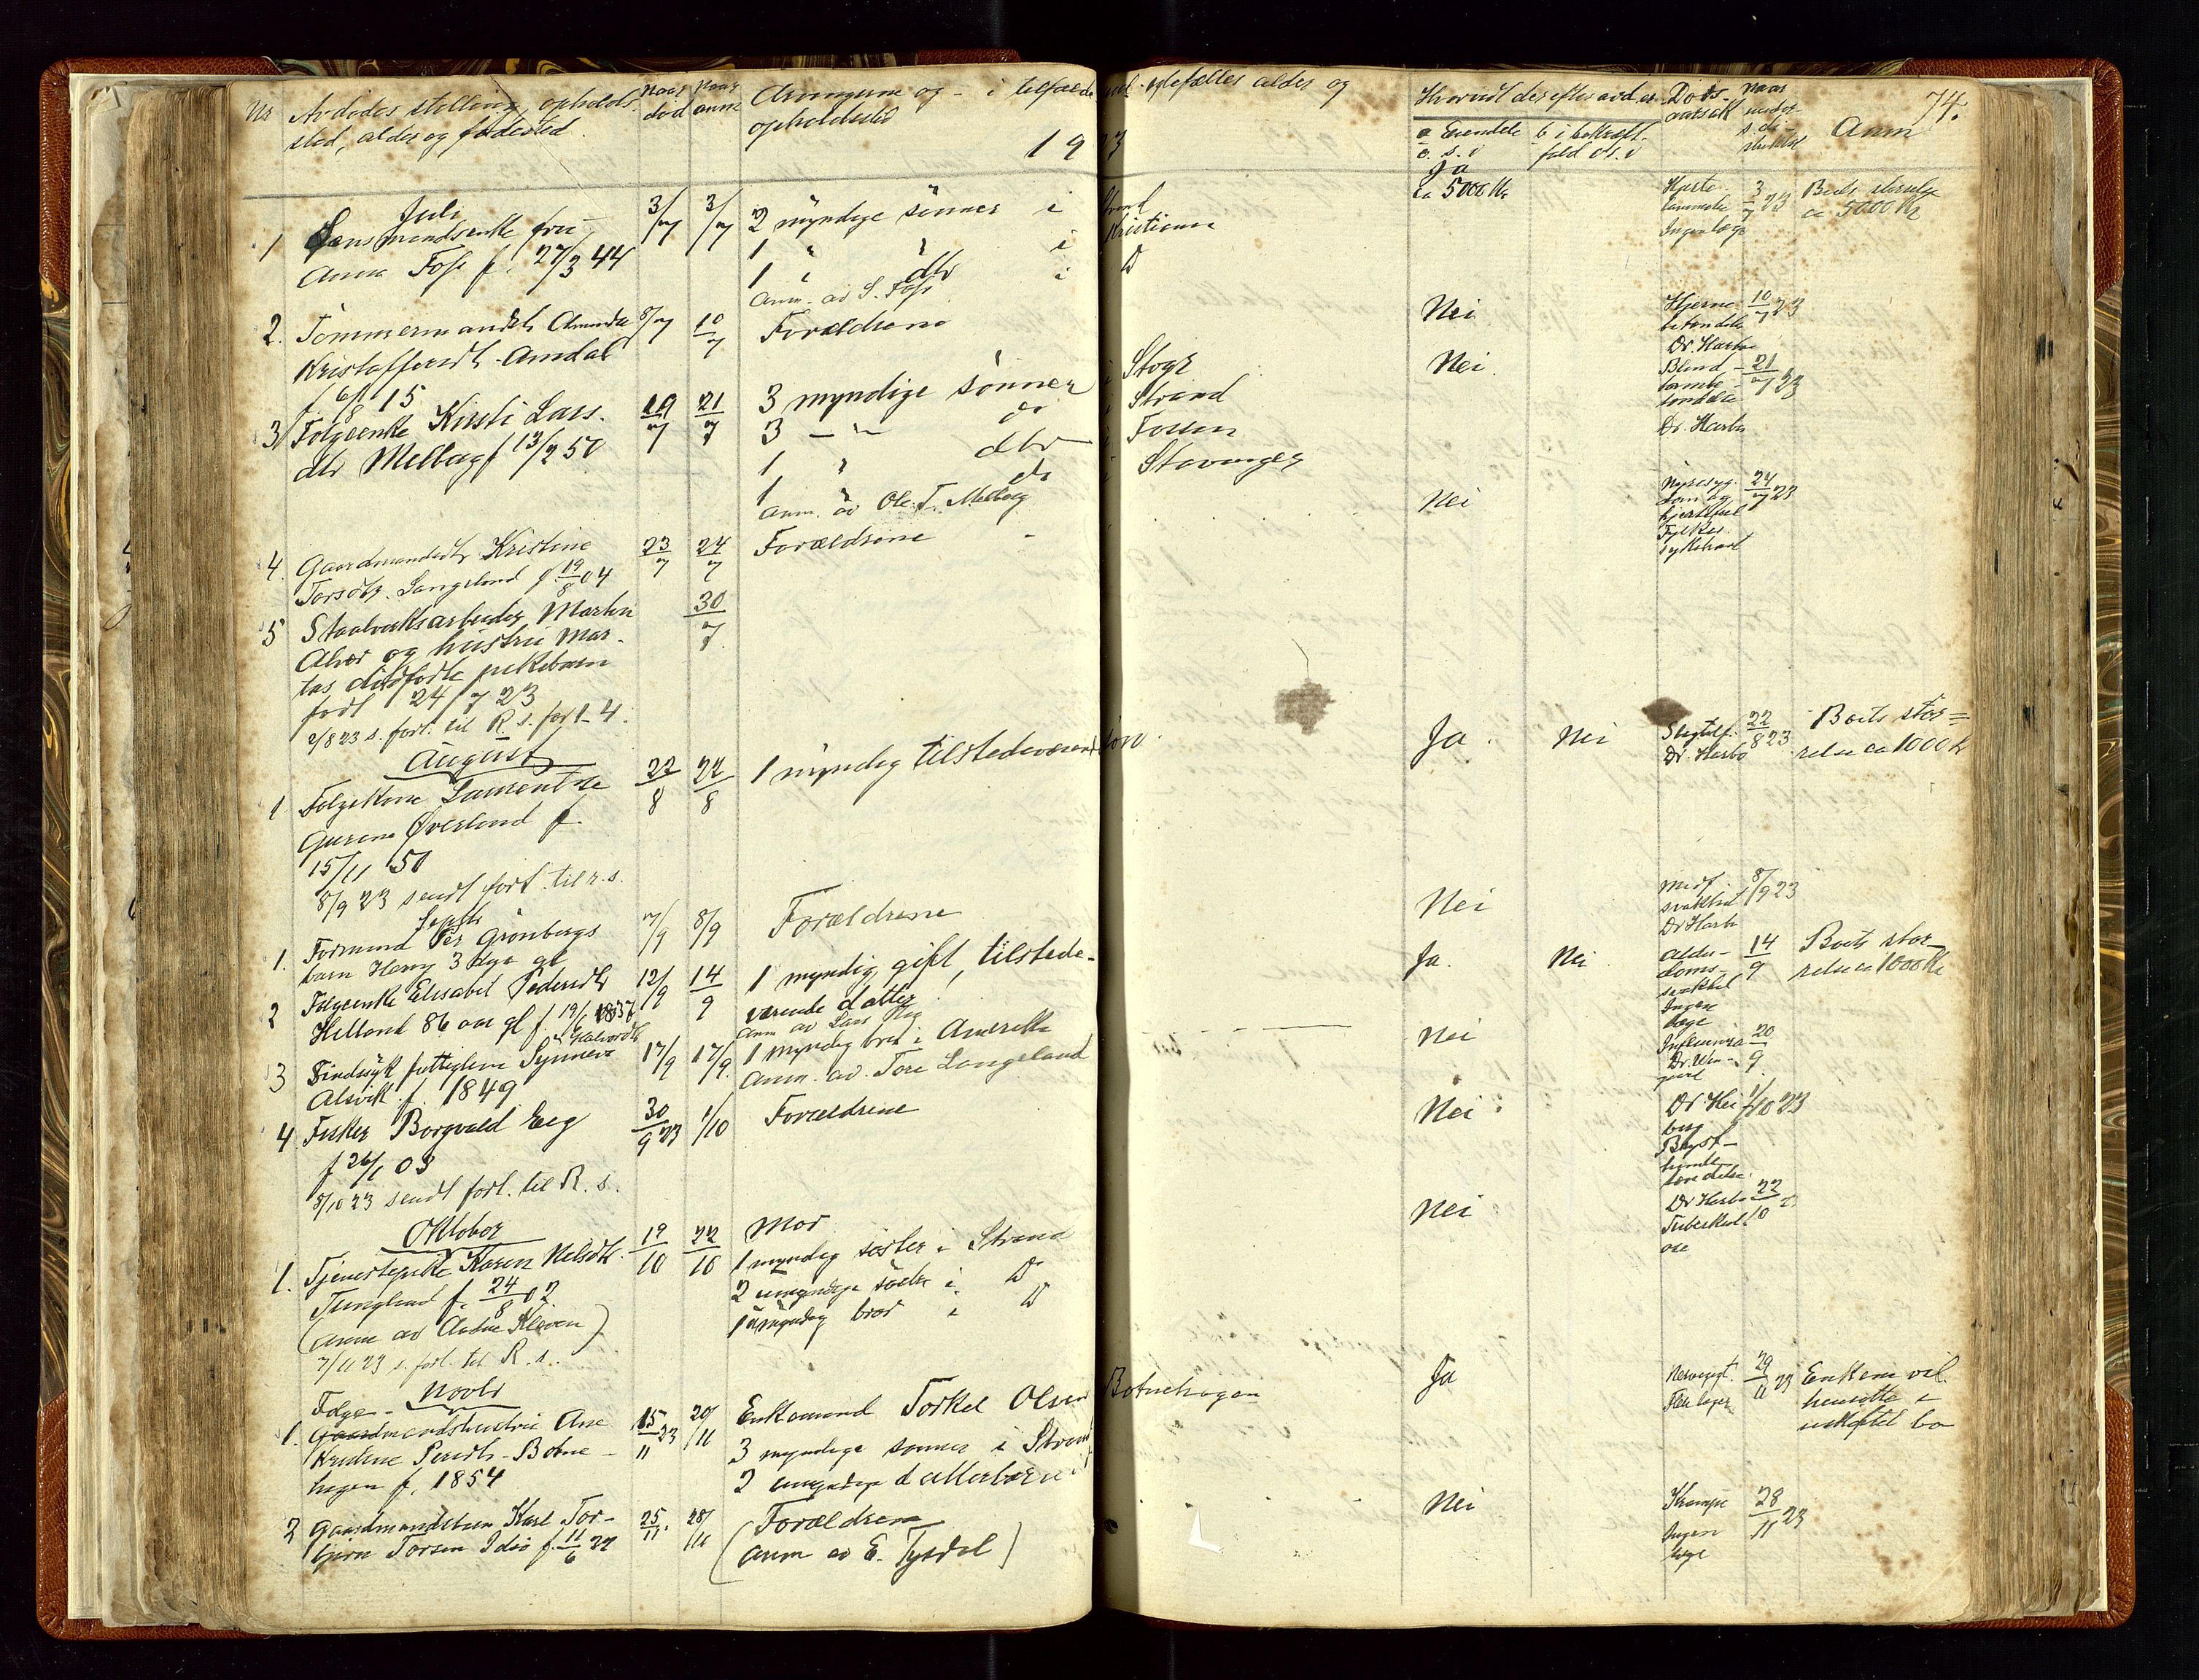 Nr Avdødes stilling, opholds- Naar død Naar anm. Arvingerne og - i tilfælde uml. - vedefaldtes alder og
sted, alder og fødested. opholdssted
Hvorvidt der efter avd. er Døds-aarsak Naar Anm 74.
1923
Juli
1 Lensmandsenke fru 3/7 3/7 2 myndige sønner i Strand Ja ca 5000 Kr 3/7 23 Boets størrelse
Anna Foss f. 27/3 44 1 " " i Kristiania ca 5000 Kr
1 " dtr i Do Ingen læge
Anm. av S. Foss
2. Tømmermandsb. Amanda 8/7 10/7 Forældrene Nei Hjerne- 10/7 23
Kristoffersdt. Amdal betændelse
f 6/8 15 Dr. Harbo
3 Følgeenke Kirsti Lars- 19/7 21/7 3 myndige sønner i Stogr Nei Blind- 21/7 23
dtr Melberg f 13/2 50 3 - " - do i Strand tarmbe-
1 " dtr i Fossen tændelse
1 " do i Stavanger Dr. Harbo
Anm. av Ole T. Melberg
4. Gaardmandsdtr Kristine 23/7 24/7 Forældrene - Nei Nyresyg- 24/7 23
Torsdtr. Langeland f 19/8 04 dom og
hjertefeil
Fylkes-
sykehuset
5 Staalverksarbeider Marten 30/7
Alvær og hustru Mar-
tas dødfødte pikebarn
født 24/7 23
2/8 23 s. fort. til R. s. for 1-4.
August
1 Følgekone Laurentze 22/8 22/8 1 myndig tilstedeværende søn. Ja. Nei Slagtilf. 22/8 23 Boets stør=
Gurine Øverland f. Dr. Harbo relse ca 1000 k
15/11 50
8/9 23 sendt fort. til r. s.
Septbr
1. Formand Per Grønbergs 7/9 8/9 Forældrene Nei Medf. 8/9 23
barn Henry 3 dage gl svakhed
Dr Harbo
2 Følgeenke Elisabet Pedersdtr 12/9 14/9 1 myndig, gift, tilstede- Ja. Nei Alder- 14/9 Boets stør-
Helland 86 aar gl f. 19/1 1837 værende datter doms- relse ca 1000 Kr
Anm av Lars svakhet
Ingen
læge
3 Sindssyk fattiglem Synneve Halvordtr 17/9 17/9. 1 myndig bror i Amerika Nei Influenza 20/9
Alsvik f. 1849 Anm. av Tore Langeland
4 Fisker Borgvald Eeg 30/9 23 1/10 Forældrene Nei Dr. Hei- 1/10 23
f 26/1 03 berg
8/10 23 sendt fort. til R. s. Bryst-
hinde-
betændelse
Oktober
1. Tjenestepike Karen Nelsdtr. 19/10 22/10 Mor Nei Dr Harbo 22/10
Tunglend f. 24/8 02. 1 myndig søster i Strand Tuberkul-
(Anm av Andre Kleven) 2 umyndige søstre i Do ose
7/11 23 s. fort. til R. s. 1 umyndig bror i Do
Novbr
1. Følge-
Gaardmandshustru Ane 15/11 23 20/11 Enkemand Torkel Olsen Botnehagen Ja 29/11 23 Enkem vil
Kristine Persdtr. Botne- 3 myndige sønner i Strand hensitte i
hagen f. 1854 2 umyndige datterbørn i uskiftet bo
2 Gaardmandsbarn Karl Tor- 25/11. 28/11 Forældrene Nei Krampe 28/11 23
bjørn Torsen Idsø f. 11/6 22 (Anm av E. Tysdal) Ingen
læge